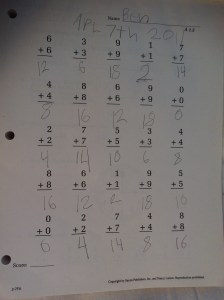 Name Ben
7th 2011
6 3 9 1 7
+6 +3 +9 +1 +7
12 6 18 2 14
4 8 6 9 0
+4 +8 +6 +9 +0
8 16 12 18 0
2 7 5 3 4
+2 +7 +5 +3 +4
4 14 10 6 8
8 6 1 9 5
+8 +6 +1 +9 +5
16 12 2 18 10
0 2 7 4 8
+0 +2 +7 +4 +8
4 14 8 16
Score: